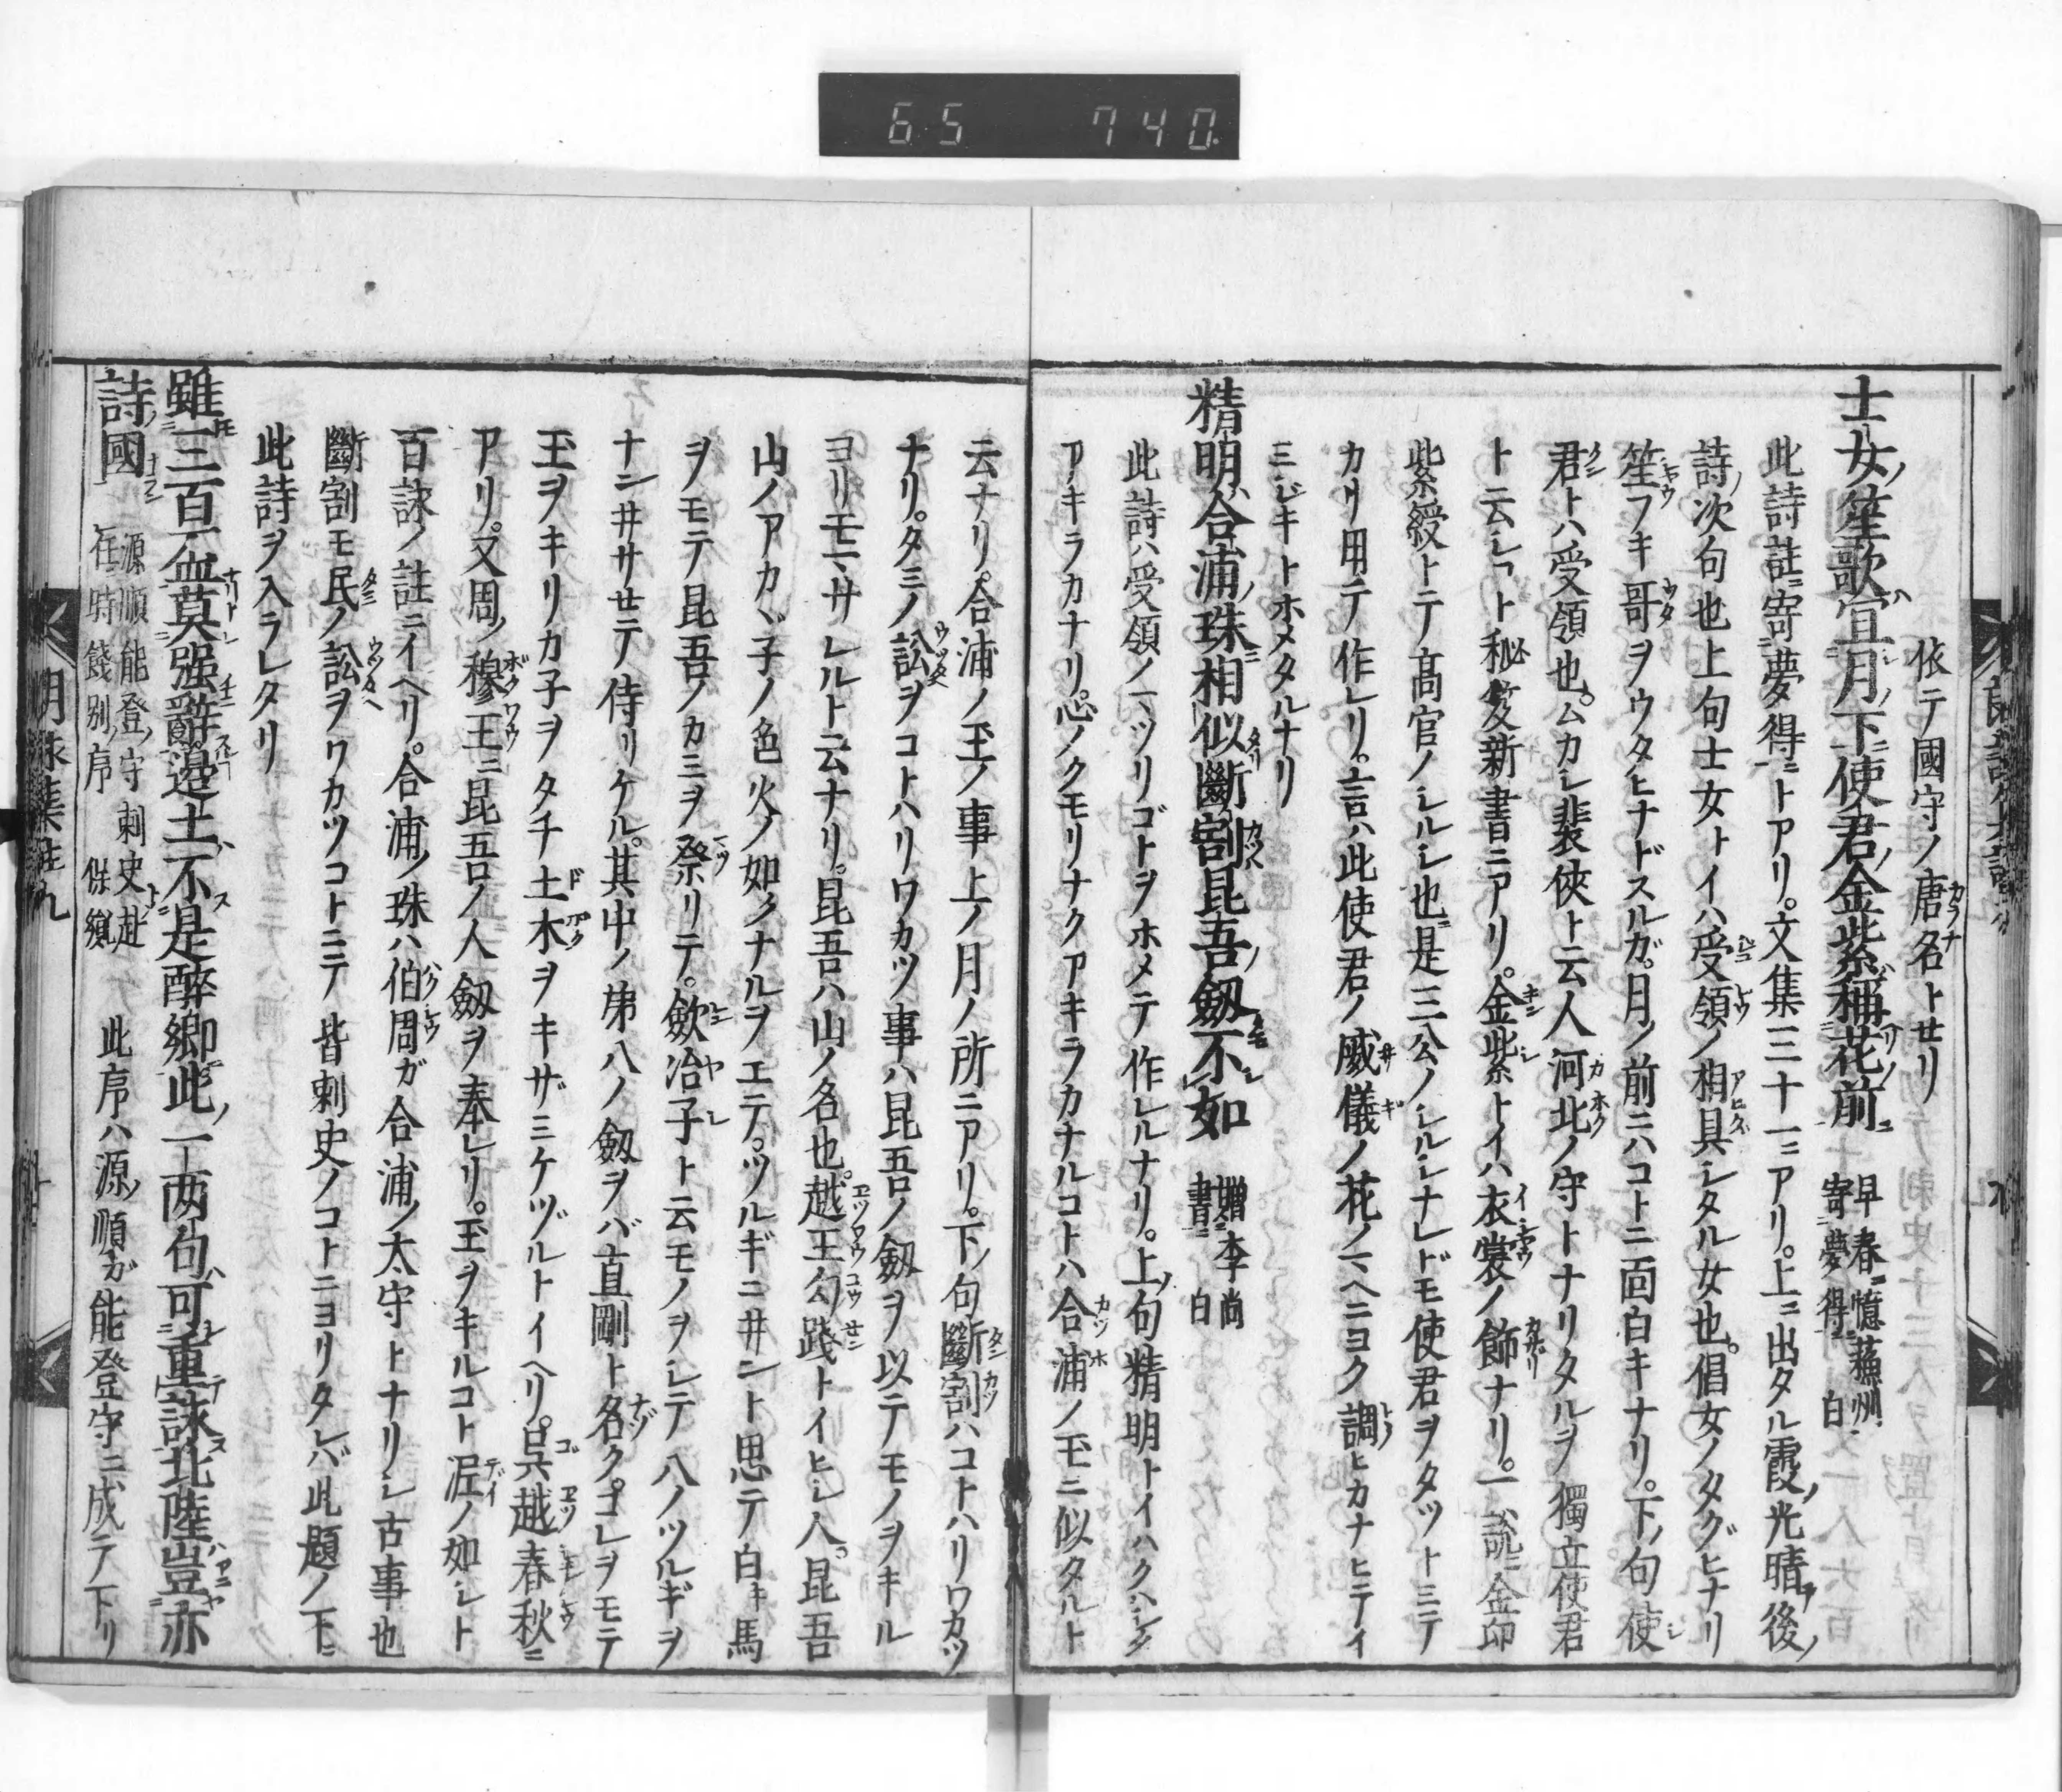 65 740.
依テ國守ノ唐名トせリ
士女ノ笙歌ハ宜シ月ノ下ニ使君ノ金紫ハ稱フ花ノ前ニ 早春憶蘇州寄夢得 白
此詩註ニ寄夢得ニトアリ。文集三十一ニアリ。上ニ出タル霞ノ光晴ア後ノ
詩ノ次句也上句士女トイハ受領ノ相具シタル女也。倡女ノタグヒナリ
笙フキ哥ヲウタヒナドスルガ。月ノ前ニハコトニ面白キナリ。下ノ句使
君トハ受領也。ムカシ裴俠ト云人河北ノ守トナリタルヲ獨立使君
ト云シコト秘笈新書ニアリ。金紫トイハ衣裳ノ飾ナリ。一説ニ金印
紫綬トテ高官ノシルシ也是三公ノシルシナレドモ使君ヲタツトミテ
カリ用テ作レリ。言ハ此使君ノ威儀ノ花ノマヘニヨク調ヒカナヒテイ
ミジキトホメタルナリ
精明合浦ノ珠相似斷割昆吾ノ劔不如 贈李尚書 白
此詩ハ受領ノマツリゴトヲホメテ作レルナリ。上ノ句精明トイハクハシク
アキラカナリ。心ノクモリナクアキラカナルコトハ合浦ノ玉ニ似タルト
云ナリ。合浦ノ玉ノ事上ノ月ノ所ニアリ。下ノ句斷割ハコトハリワカツ
ナリ。タミノ訟ヲコトハリワカツ事ハ昆吾ノ劔ヲ以テモノヲキル
ヨリモマサレルト云ナリ。昆吾ハ山ノ名也。越王勾踐トイヒシ人。昆吾
山ノアカヾ子ノ色火ノ如クナルヲエテ。ツルギニ井ント思テ白キ馬
ヲモテ昆吾ノカミヲ祭リテ。歐冶子ト云モノヲシテ八ノツルギヲ
ナン井サせテ侍リケル。其中ノ第八ノ劔ヲバ直剛ト名ク。コレヲモテ
玉ヲキリカ子ヲタチ土木ヲキザミケヅルトイヘリ。呉越春秋ニ
アリ。又周ノ穆王ニ昆吾ノ人劔ヲ奉レリ。玉ヲキルコト泥ノ如シト
百詠ノ註ニイヘリ。合浦ノ珠ハ伯周ガ合浦ノ太守トナリシ古事也
斷割モ民ノ訟ヲワカツコトニテ皆刺史ノコトニヨリタレバ此題ノ下ニ
此詩ヲ入ラレタリ
雖三百盃莫强辭邊土不是醉郷此ノ一両句可重詠北陸豈亦
詩國 源順能登ノ守刺史赴任時餞別ノ序 保胤 此序ハ源ノ順ガ能登守ニ成テ下リ